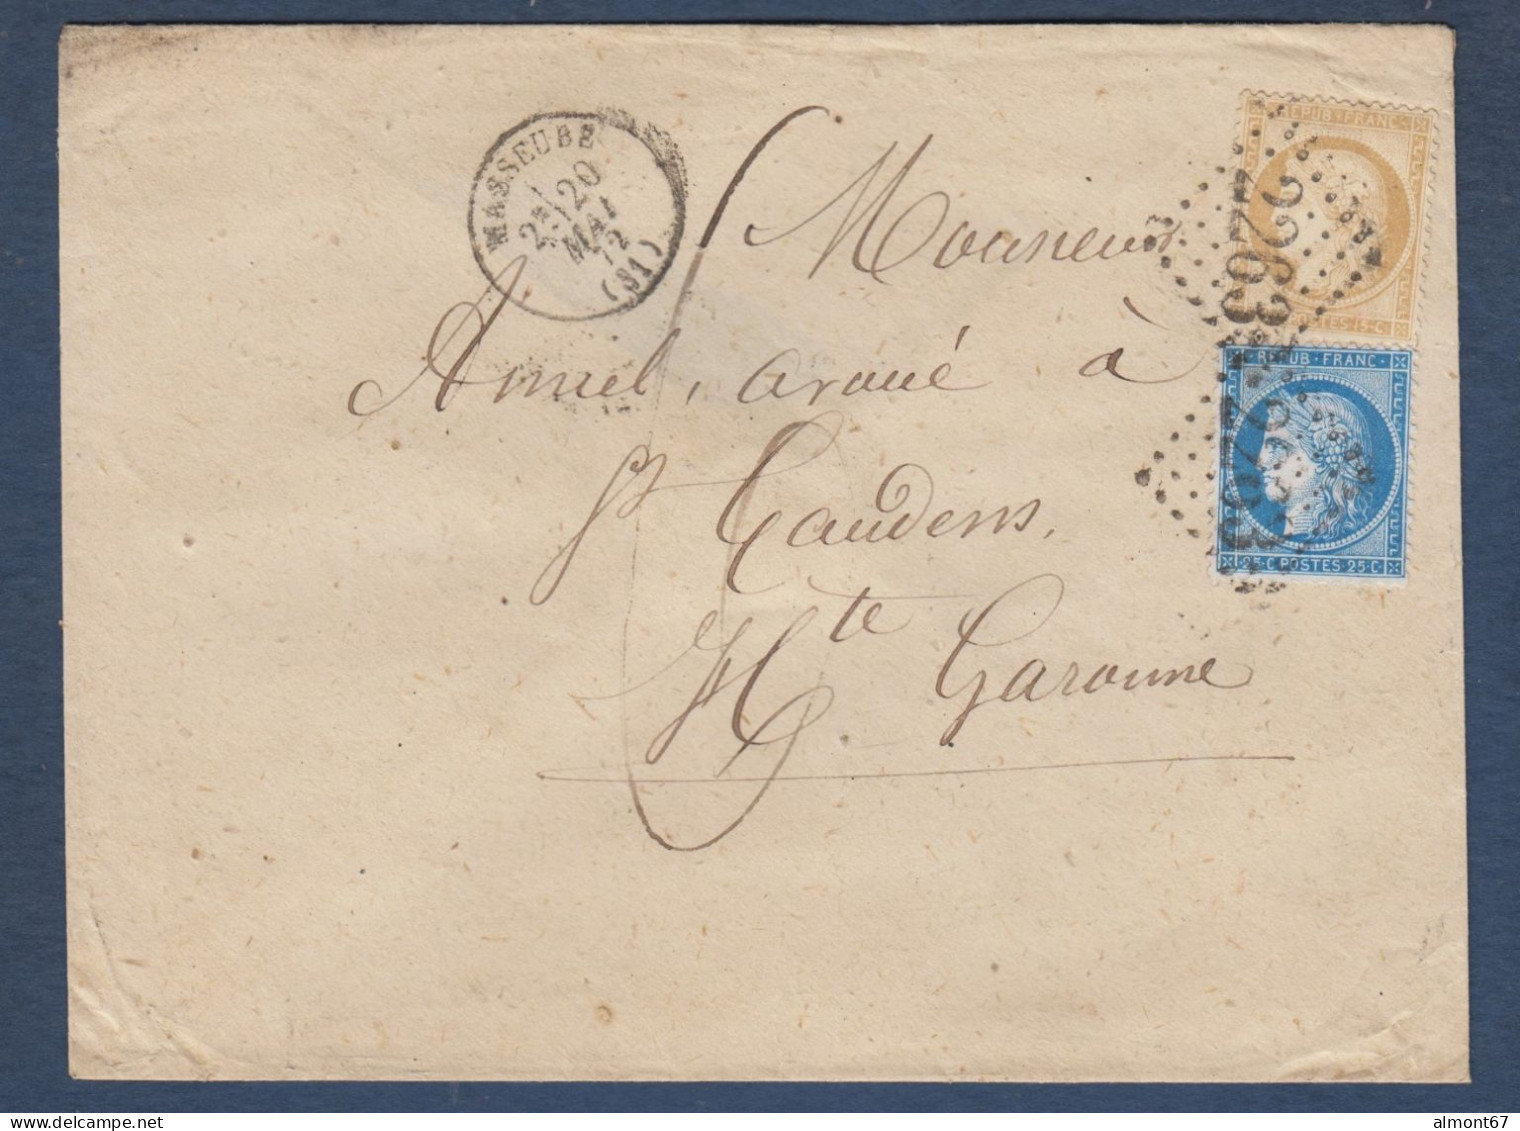 MASSEUBE
2E
20
MAI
72
(31)
REPUB·FRANC·
POSTES·15·C·
2263
REPUB·FRANC·
25·C·POSTES·25·C·
Monsieur
Amiel, avoué à
St Gaudens,
Hte Garonne
almont67